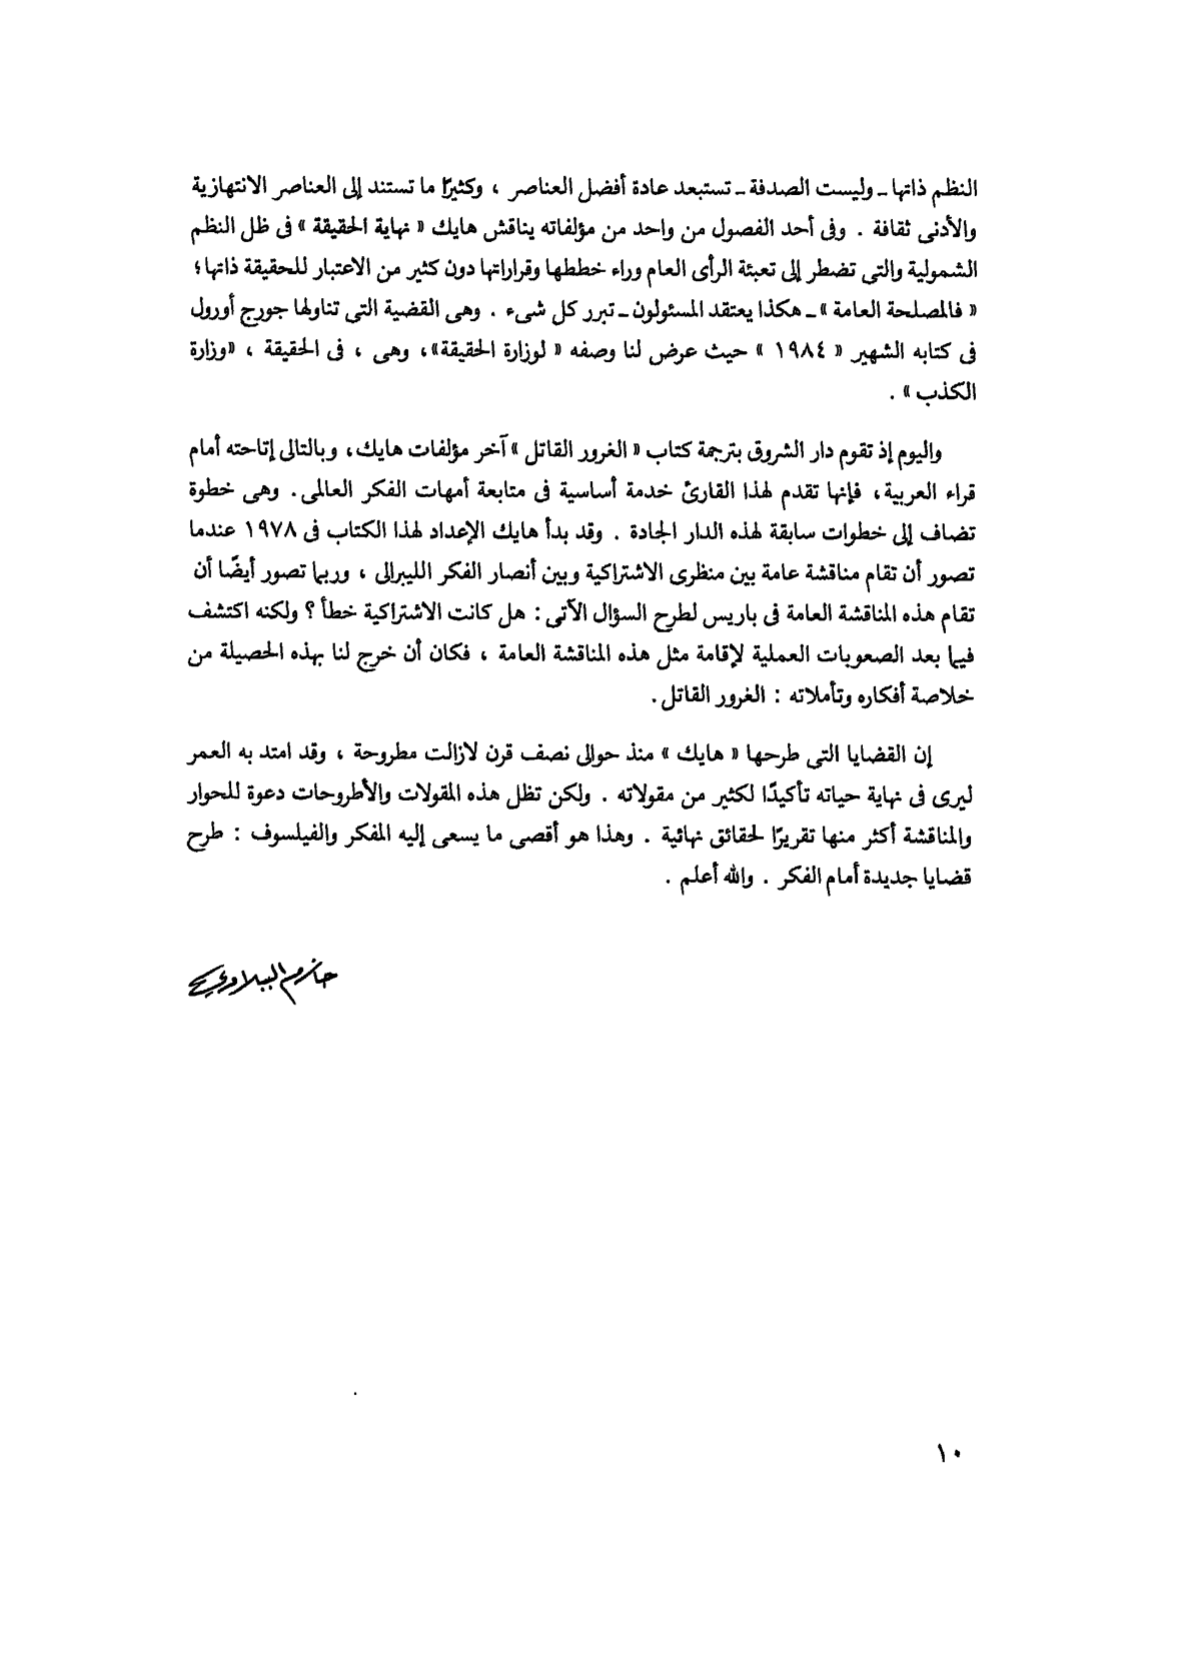 النظم ذاتها ـ وليست الصدفة ـ تستبعد عادة أفضل العناصر ، وكثيرًا ما تستند إلى العناصر الانتهازية
والأدنى ثقافة . وفى أحد الفصول من واحد من مؤلفاته يناقش هايك « نهاية الحقيقة » فى ظل النظم
الشمولية والتى تضطر إلى تعبئة الرأى العام وراء خططها وقراراتها دون كثير من الاعتبار للحقيقة ذاتها ؛
« فالمصلحة العامة » ـ هكذا يعتقد المسئولون ـ تبرر كل شىء . وهى القضية التى تناولها جورج أورول
فى كتابه الشهير « ١٩٨٤ » حيث عرض لنا وصفه « لوزارة الحقيقة» ، وهى ، فى الحقيقة ، «وزارة
الكذب » .
واليوم إذ تقوم دار الشروق بترجمة كتاب « الغرور القاتل » آخر مؤلفات هايك ، وبالتالى إتاحته أمام
قراء العربية ، فإنها تقدم لهذا القارئ خدمة أساسية فى متابعة أمهات الفكر العالمى . وهى خطوة
تضاف إلى خطوات سابقة لهذه الدار الجادة . وقد بدأ هايك الإعداد لهذا الكتاب فى ١٩٧٨ عندما
تصور أن تقام مناقشة عامة بين منظرى الاشتراكية وبين أنصار الفكر الليبرالى ، وربما تصور أيضًا أن
تقام هذه المناقشة العامة فى باريس لطرح السؤال الآتى : هل كانت الاشتراكية خطأ ؟ ولكنه اكتشف
فيما بعد الصعوبات العملية لإقامة مثل هذه المناقشة العامة ، فكان أن خرج لنا بهذه الحصيلة من
خلاصة أفكاره وتأملاته : الغرور القاتل .
إن القضايا التى طرحها « هايك » منذ حوالى نصف قرن لازالت مطروحة ، وقد امتد به العمر
ليرى فى نهاية حياته تأكيدًا لكثير من مقولاته . ولكن تظل هذه المقولات والأطروحات دعوة للحوار
والمناقشة أكثر منها تقريرًا لحقائق نهائية . وهذا هو أقصى ما يسعى إليه المفكر والفيلسوف : طرح
قضايا جديدة أمام الفكر . والله أعلم .
حازم الببلاوي
١٠